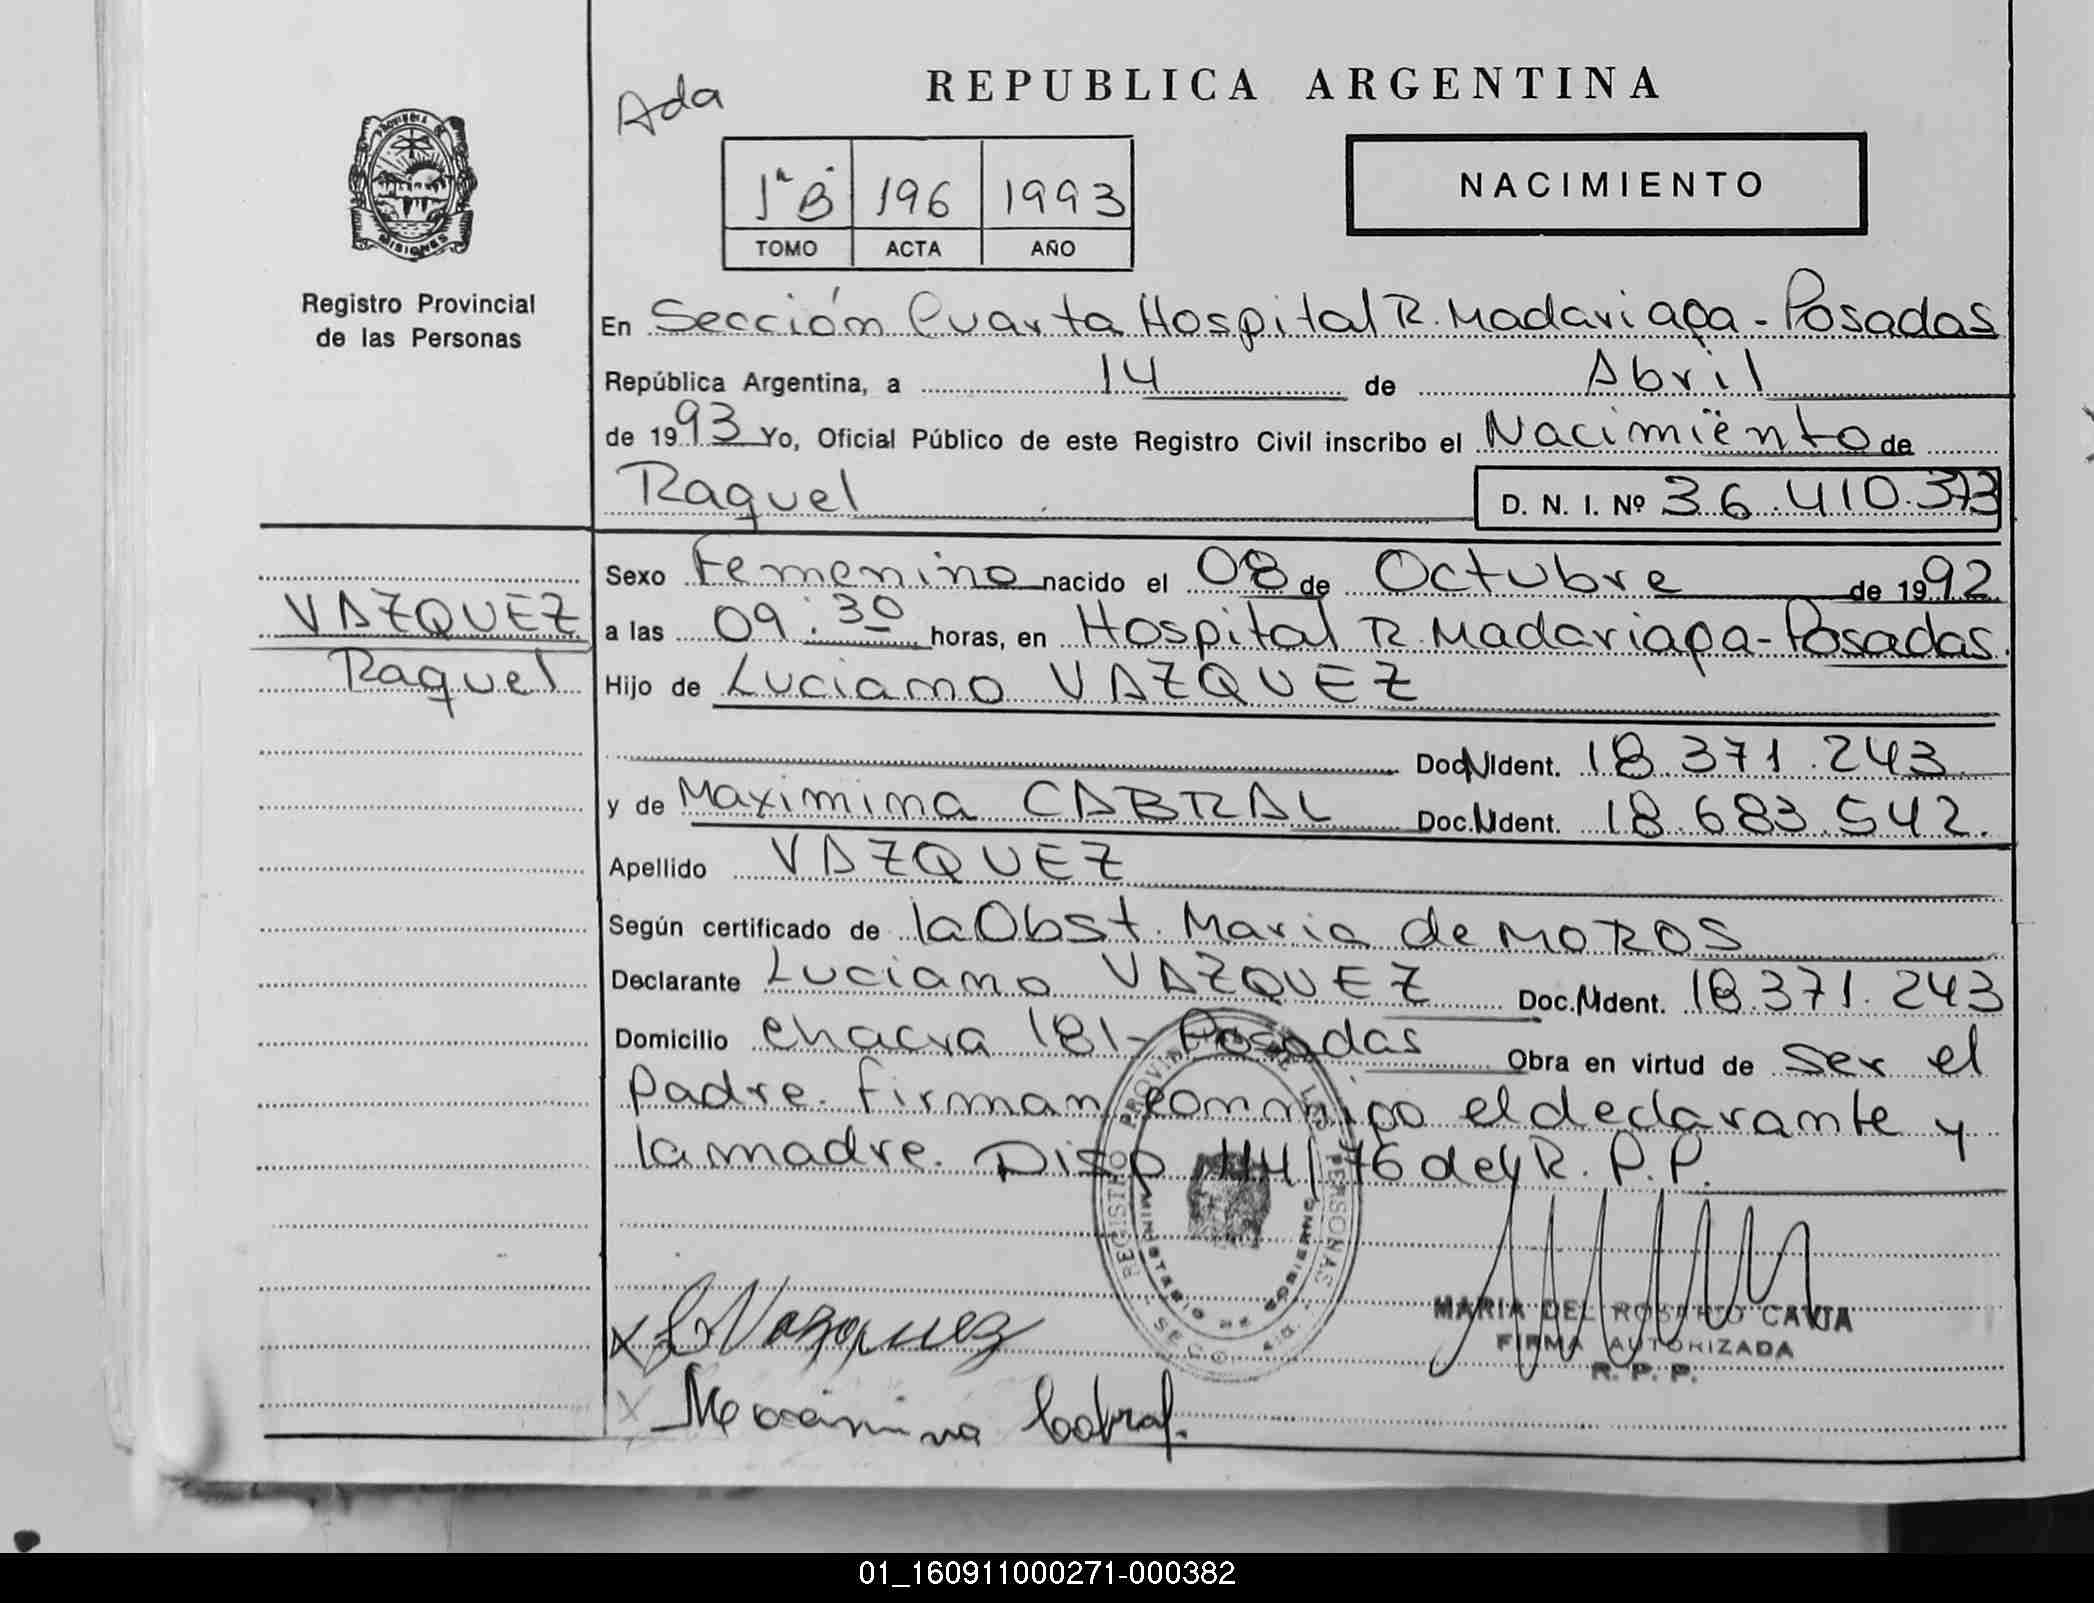 REPUBLICA ARGENTINA
Ada
PROVINCIA DE
MISIONES
1ª B
196
1993
TOMO
ACTA
AÑO
NACIMIENTO
Registro Provincial
de las Personas
En Sección Cuarta Hospital R. Madariaga - Posadas
República Argentina, a 14 de Abril
de 1993 Yo, Oficial Público de este Registro Civil inscribo el Nacimiento de
Raquel D. N. I. Nº 36.410.373
Sexo Femenino nacido el 08 de Octubre de 1992
VAZQUEZ
Raquel
a las 09:30 horas, en Hospital R. Madariaga - Posadas.
Hijo de Luciano VAZQUEZ
Doc. N Ident. 18.371.243
y de Maximina CABRAL Doc. N Ident. 18.683.542.
Apellido VAZQUEZ
Según certificado de la Obst. Maria de MOROS
Declarante Luciano VAZQUEZ Doc. N Ident. 18.371.243
Domicilio chacra 181 - Posadas Obra en virtud de ser el
Padre. firman conmigo el declarante y
la madre. Disp 114/76 del R.P.P.
REGISTRO PROVINCIAL DE LAS PERSONAS
MINISTERIO DE GOBIERNO
SECC
L Vazquez
MARIA DEL ROSARIO CAVIA
FIRMA AUTORIZADA
R. P. P.
X Maximina Cabral.
01_160911000271-000382